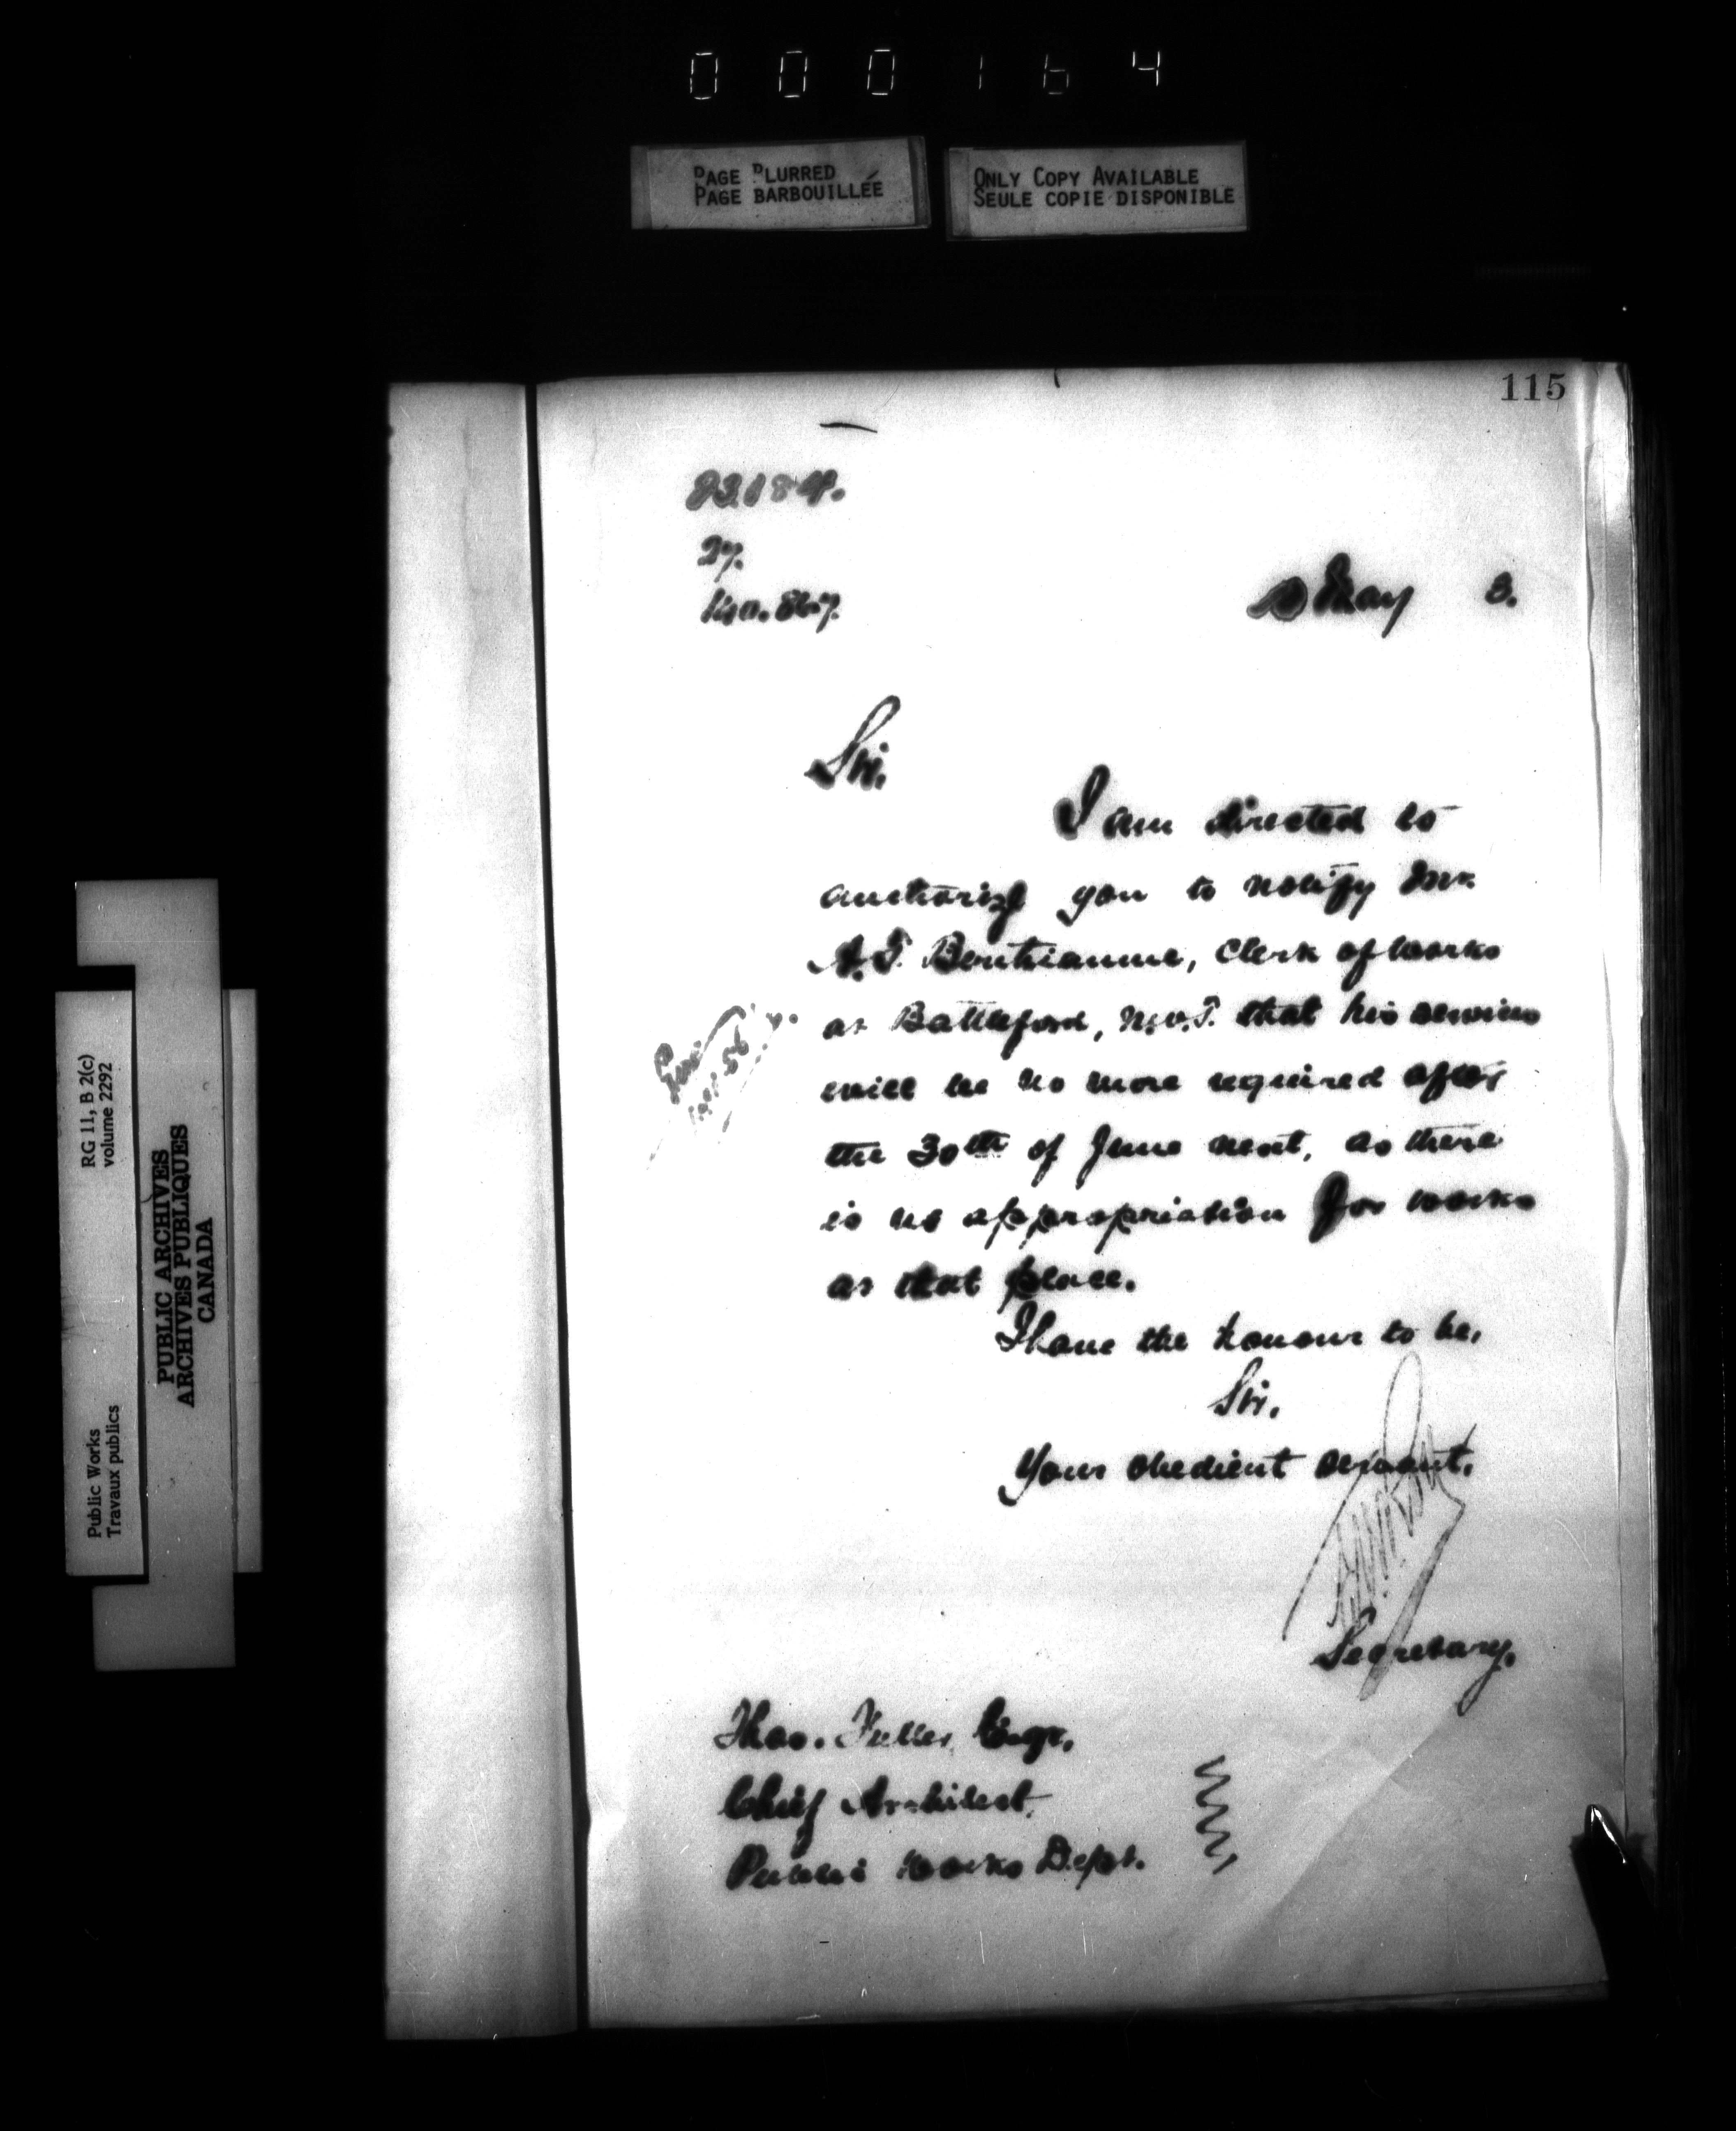 000164
PAGE BLURRED
PAGE BARBOUILLÉE
ONLY COPY AVAILABLE
SEULE COPIE DISPONIBLE
115
23184.
27.
May 3.
Sir,
I am directed to
authorize you to notify Mr.
A.G. , Clerk of Works
at Battleford, N.W.T. that his services
will be no more required after
the 30th of June next, as there
is no appropriation for works
at that place.
I have the honour to be,
Sir,
Your obedient servant,
Secretary.
Thos. Fuller, Esqr.
Chief Architect,
Public Works Dept.
RG 11, B 2(c)
volume 2292
Public Works
Travaux publics
PUBLIC ARCHIVES
ARCHIVES PUBLIQUES
CANADA